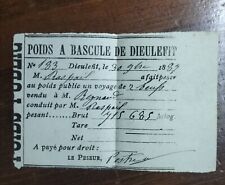 POIDS PUBLIC
POIDS A BASCULE DE DIEULEFIT
No 183 Dieulefit, le 30 9bre 1889
M. Raspail a fait peser
au poids public un voyage de 2 bœufs
vendu à M. Reynaud
conduit par M. Raspail
pesant... Brut 715 685 kilog
Tare
Net
A payé pour droit:
LE PESEUR,